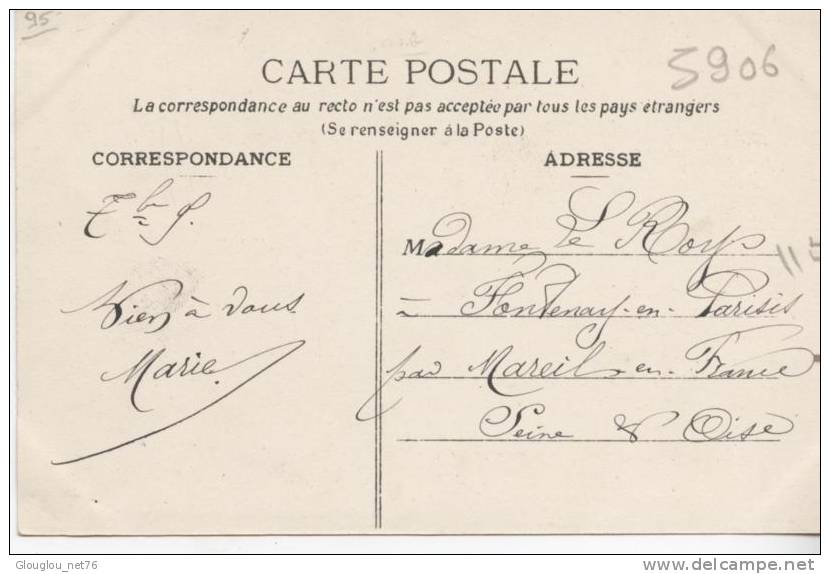 95
5906
CARTE POSTALE
La correspondance au recto n'est pas acceptée par tous les pays étrangers
(Se renseigner à la Poste)
CORRESPONDANCE
Bien à vous
Marie
ADRESSE
Madame Le Roy
à Fontenay-en-Parisis
par Mareil-en-France
Seine & Oise
Glouglou_net76
www.delcampe.net